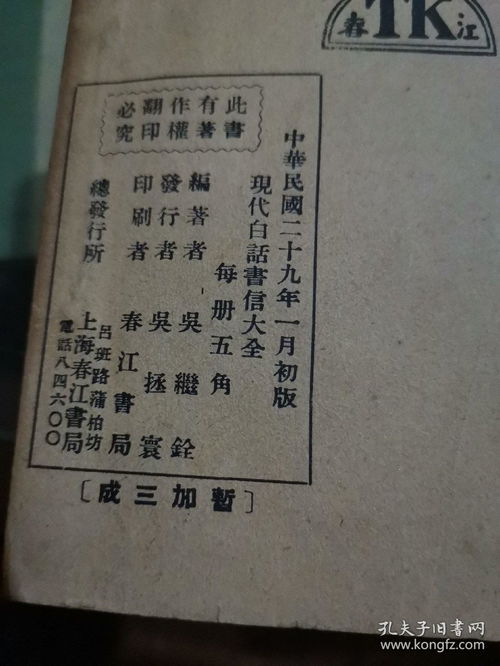 春 TK 江
中華民國二十九年一月初版
現代白話書信大全
每册五角
此書有著作權翻印必究
編著者 吳繼銓
發行者 吳拯寰
印刷者 春江書局
總發行所 上海春江書局
呂班路蒲柏坊
電話八四六〇〇
〔暫加三成〕
孔夫子旧书网
www.kongfz.com